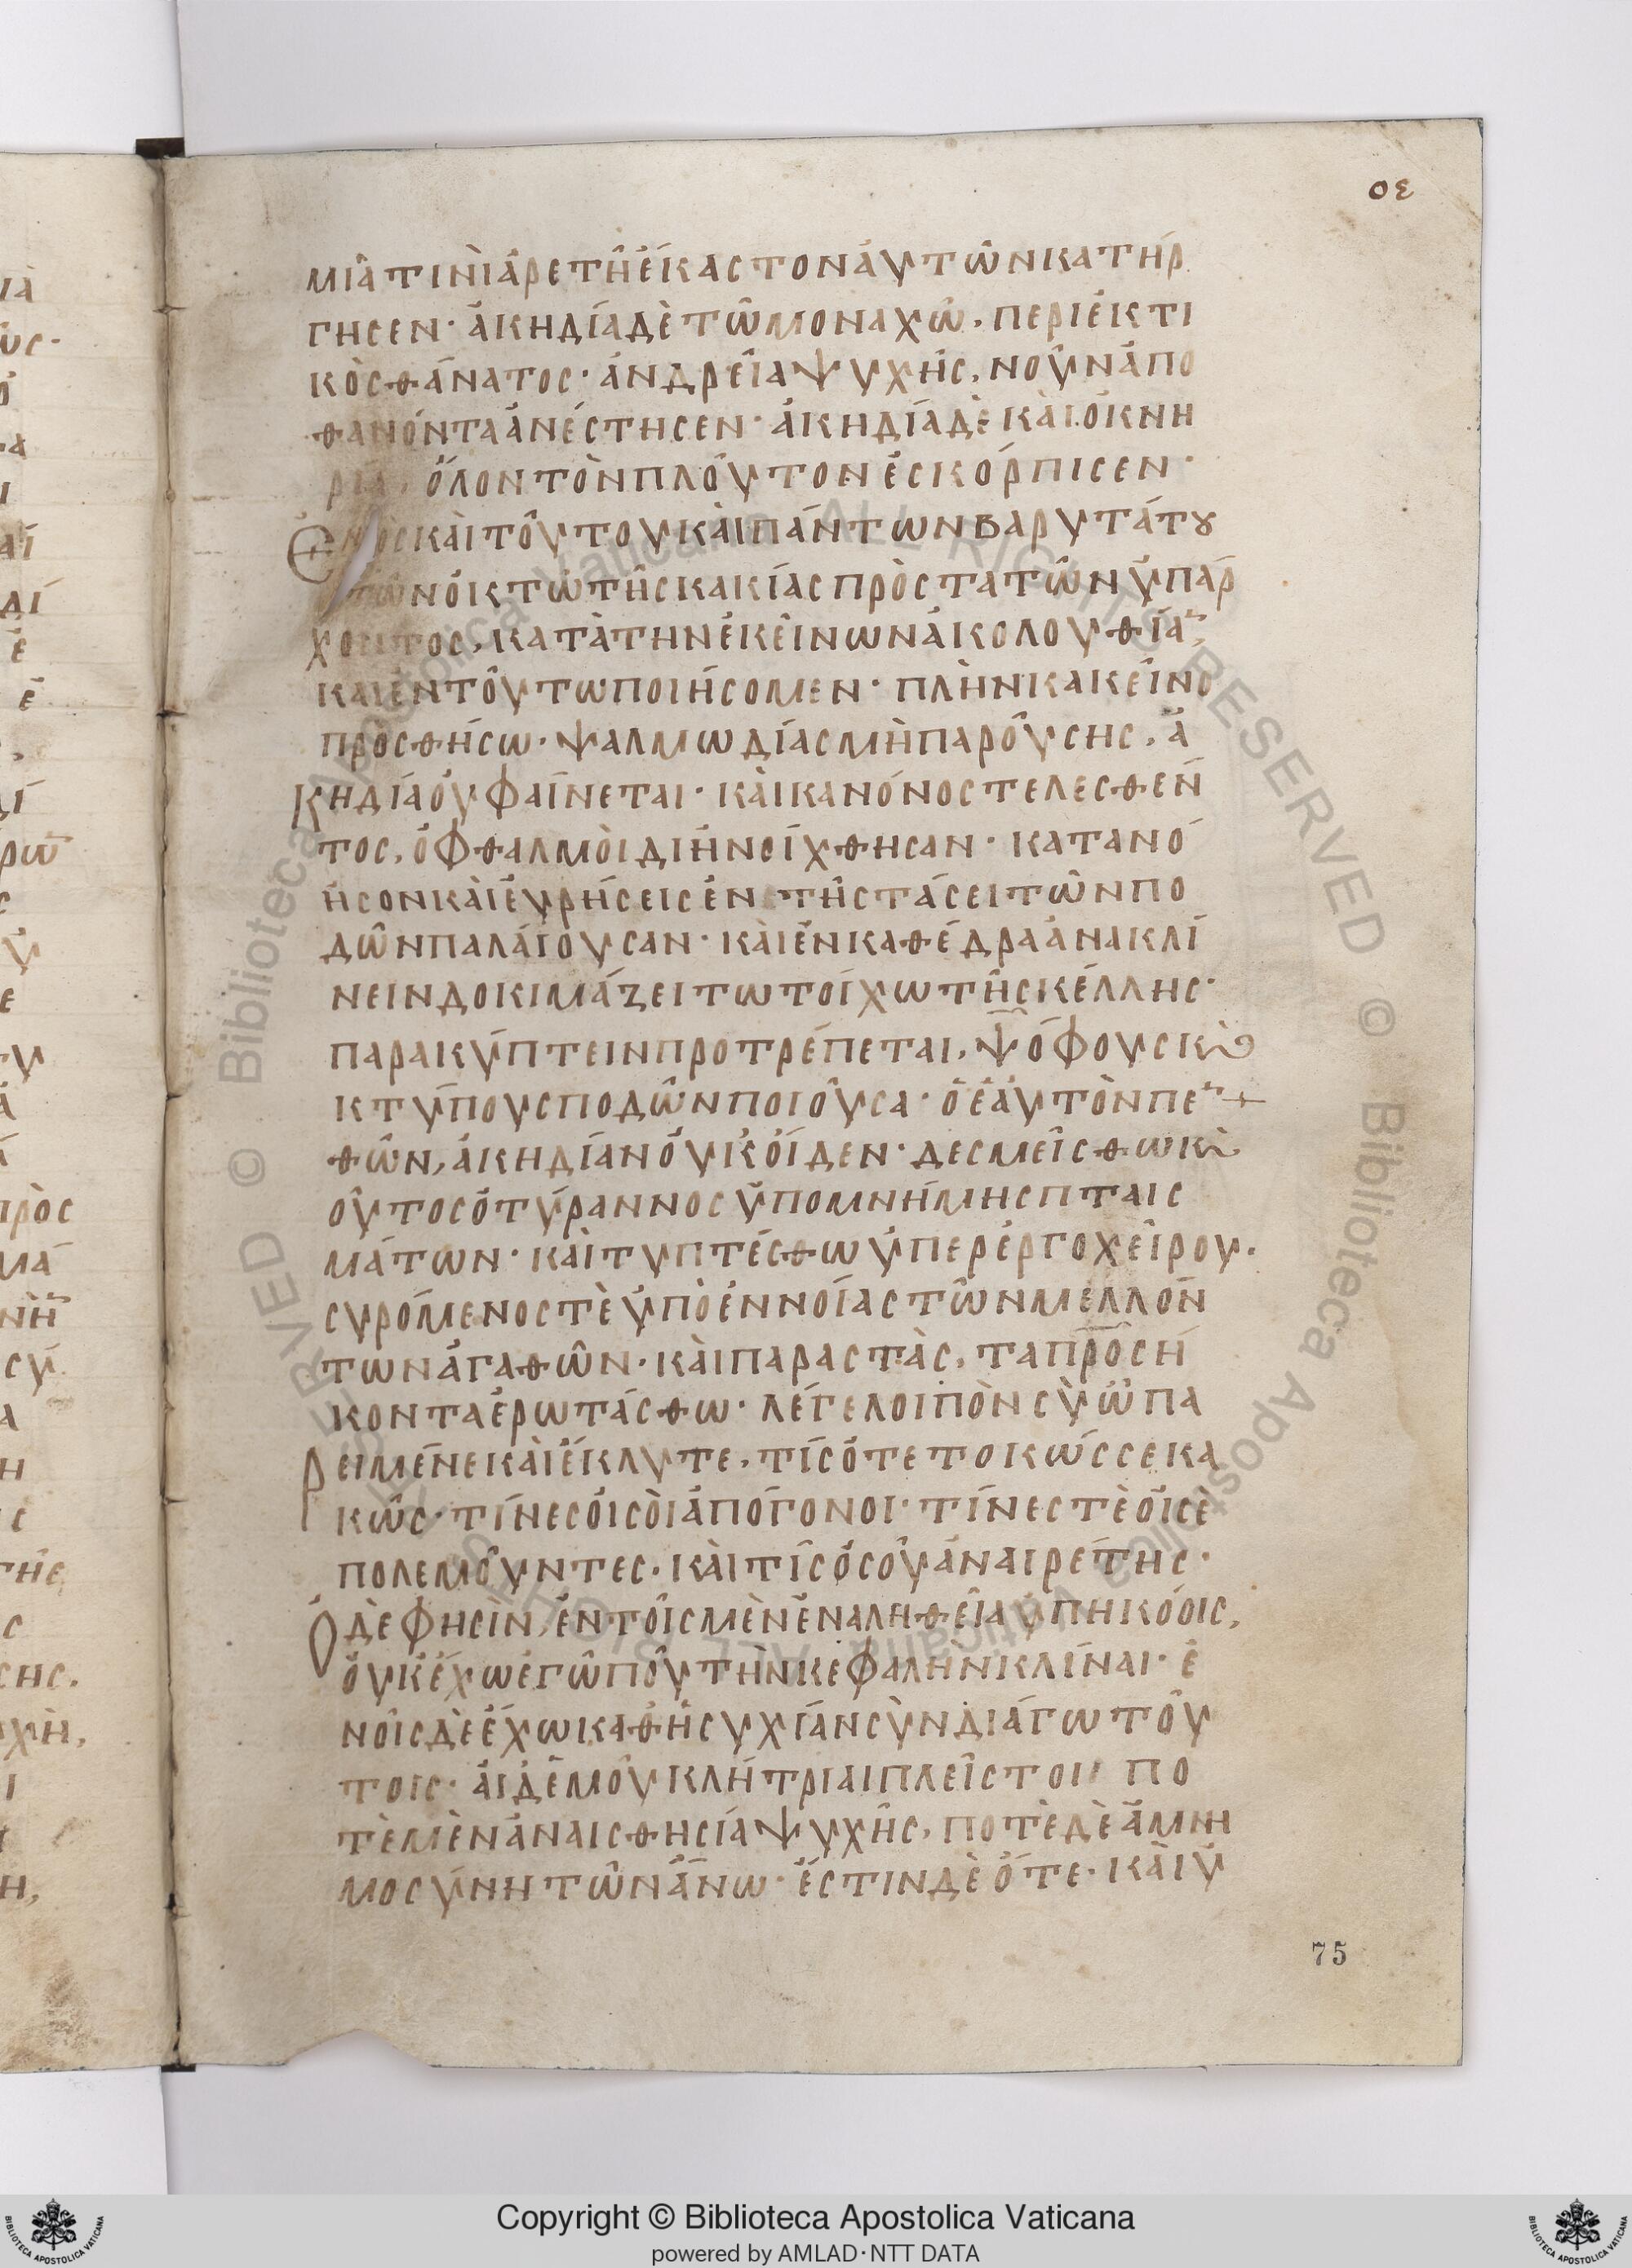 οε
μιᾶ τινὶ ἀρετῇ ἕκαστον ἀυτῶν κατήρ
γησεν· ἀκηδία δὲ τῶ μοναχῶ, περιεκτι
κὸς θάνατος· ἀνδρεία ψυχῆς, νοῦν ἀπο
θανόντα ἀνέστησεν· ἀκηδία δὲ καὶ ὀκνη
ρία, ὅλον τὸν πλοῦτον ἐσκόρπισεν·
Ἑνὸς καὶ τοῦτου καὶ πάντων βαρυτάτου
τῶν ὀκτὼ τῆς κακίας προστατῶν ὑπάρ
χοντος, κατὰ την ἐκείνων ἀκολουθίαν,
καὶ ἐν τοῦτω ποιήσομεν· πλὴν κακεῖνο
προσθήσω· ψαλμωδίας μὴ παρούσης, ἀ
κηδία ὀυ φαίνεται· καὶ κανόνος τελεσθέν
τος, ὀφθαλμοὶ διηνοίχθησαν· κατανό
ησον καὶ ἑυρήσεις ἐν τῆ στάσει τῶν πο
δῶν παλαίουσαν· καὶ ἐν καθέδρα ἀνακλί
νειν δοκιμάζει τω τοίχω τῆς κέλλης·
παρακύπτειν προτρέπεται, ψόφους καὶ
κτύπους ποδῶν ποιοῦσα· ὁ ἑαυτὸν πεν
θῶν, ἀκηδίαν ὀυκ ὀίδεν· δεσμείσθω καὶ
οῦτος ὁ τύραννος ὑπο μνήμης πταισ
μάτων· καὶ τυπτέσθω ὑπερ ἐργοχείρου·
συρόμενος τὲ ὑπὸ ἐννοίας τῶν μελλόν
των ἀγαθῶν· καὶ παραστὰς, τα προσή
κοντα ἐρωτάσθω· λέγε λοιπὸν σὺ ὦ πα
ρειμένε καὶ ἔκλυτε, τίς ὁ τετοκώς σε κα
κῶς· τίνες ὀι σοὶ ἀπόγονοι· τίνες τὲ ὀι σὲ
πολεμοῦντες· καὶ τίς ὁ σοῦ ἀναιρέτης·
Ὁ δὲ φησὶν, ἐν τοῖς μὲν ἐν αληθεία υπηκόοις,
ὀυκ ἔχω ἐγῶ ποῦ τὴν κεφαλὴν κλίναι· ἐ
νοῖς δὲ ἔχω καθησυχίαν σὺνδιάγω τοῦ
τοις· ἁι δὲ μοῦ κλήτριαι πλεῖστοι πο
τὲ μὲν ἀναισθησία ψυχῆς, ποτὲ δὲ ἀμνη
μοσύνη τῶν ἄνω· ἔστιν δὲ ὅτε· καὶ ὑ
75
Copyright © Biblioteca Apostolica Vaticana
powered by AMLAD·NTT DATA